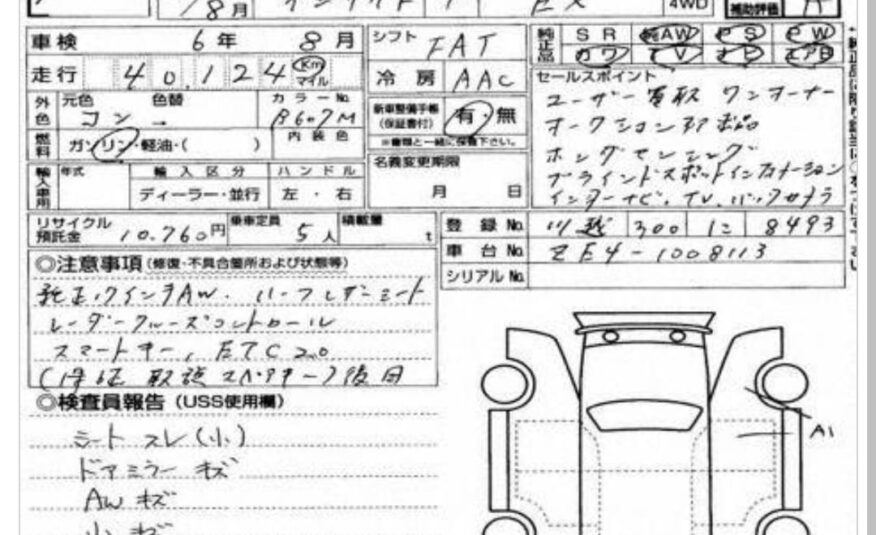 8月 インサイト EX 4WD 補助評価 A
車検 6年 8月 シフト FAT 純正品 SR 純AW PS PW
カワ TV ナビ エアB
走行 40,124 Km マイル 冷房 AAC
セールスポイント
外色 元色 色替 カラーNo. 内装色
コン → B607M
新車整備手帳 (保証書付) 有・無
※書類と一緒に保管下さい。
ユーザー買取 ワンオーナー
燃料 ガソリン・軽油・( )
輸入車用 年式 輸入区分 ハンドル
ディーラー・並行 左・右
名義変更期限 月 日
ホンダセンシング
ブラインドスポットインフォメーション
インターナビ、TV、バックカメラ
リサイクル預託金 10.760円 乗車定員 5人 積載量 t
登録No. 川越 300 に 8493
車台No. ZE4-1008113
シリアルNo.
◎注意事項 (修復・不具合箇所および状態等)
ハーフレザーシート
レーダークルーズコントロール
スマートキー、ETC2.0
◎検査員報告 (USS使用欄)
シート スレ(小)
ドアミラー キズ
AW キズ
小キズ
A1